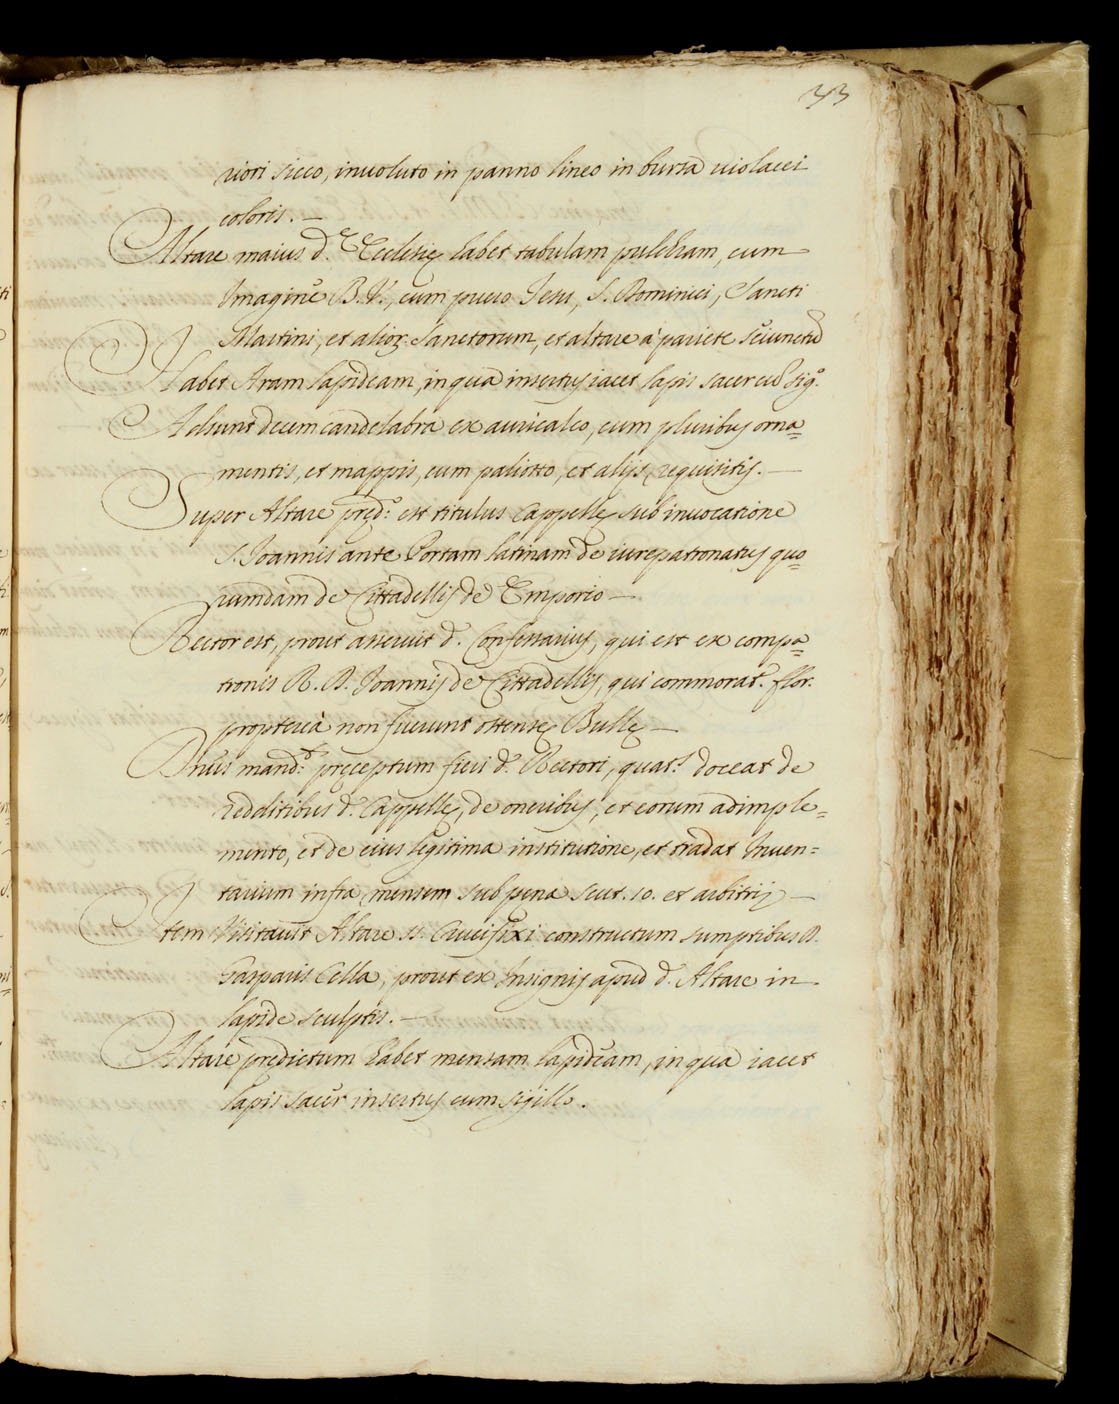 33
riori sicco, inuoluto in panno lineo in bursa uiolacei
coloris. —
Altare maius d.ę Ecclesię habet tabulam pulchram, cum
Imagine B. V., cum puero Iesu, S. Dominici, Sancti
Martini, et alior. Sanctorum, et altare à pariete seiunctũ
Habet Aram lapideam, in qua insertus iacet lapis sacer cũ sig.º
Adsunt decem candelabra ex auricalco, cum pluribus orna=
mentis, et mappis, cum paliotto, et alijs requisitis. —
Super Altare pręd: est titulus Cappellę sub inuocatione
S. Ioannis ante Portam latinam de iurepatronatus quo=
rumdam de Cittadellis de Emporio —
Rector est, prout asseruit d. Confessarius, qui est ex compa=
tronis R. D. Ioannis de Cittadellis, qui commorat. flor.
propterea non fuerunt ostensę Bullę —
Dnus mand.t pręceptum fieri d. Rectori, quat.s doceat de
redditibus d. Cappellę, de oneribus, et eorum adimple=
mento, et de eius legitima institutione, et tradat Inuen=
tarium infra mensem sub pena scut. 10. et arbitrij —
Item Visitauit Altare SS. Crucifixi constructum sumptibus D.
Gasparis Cella, prout ex Insignijs apud d. Altare in
lapide sculptis. —
Altare predictum habet mensam lapideam, in qua iacet
lapis sacer insertus cum sigillo.